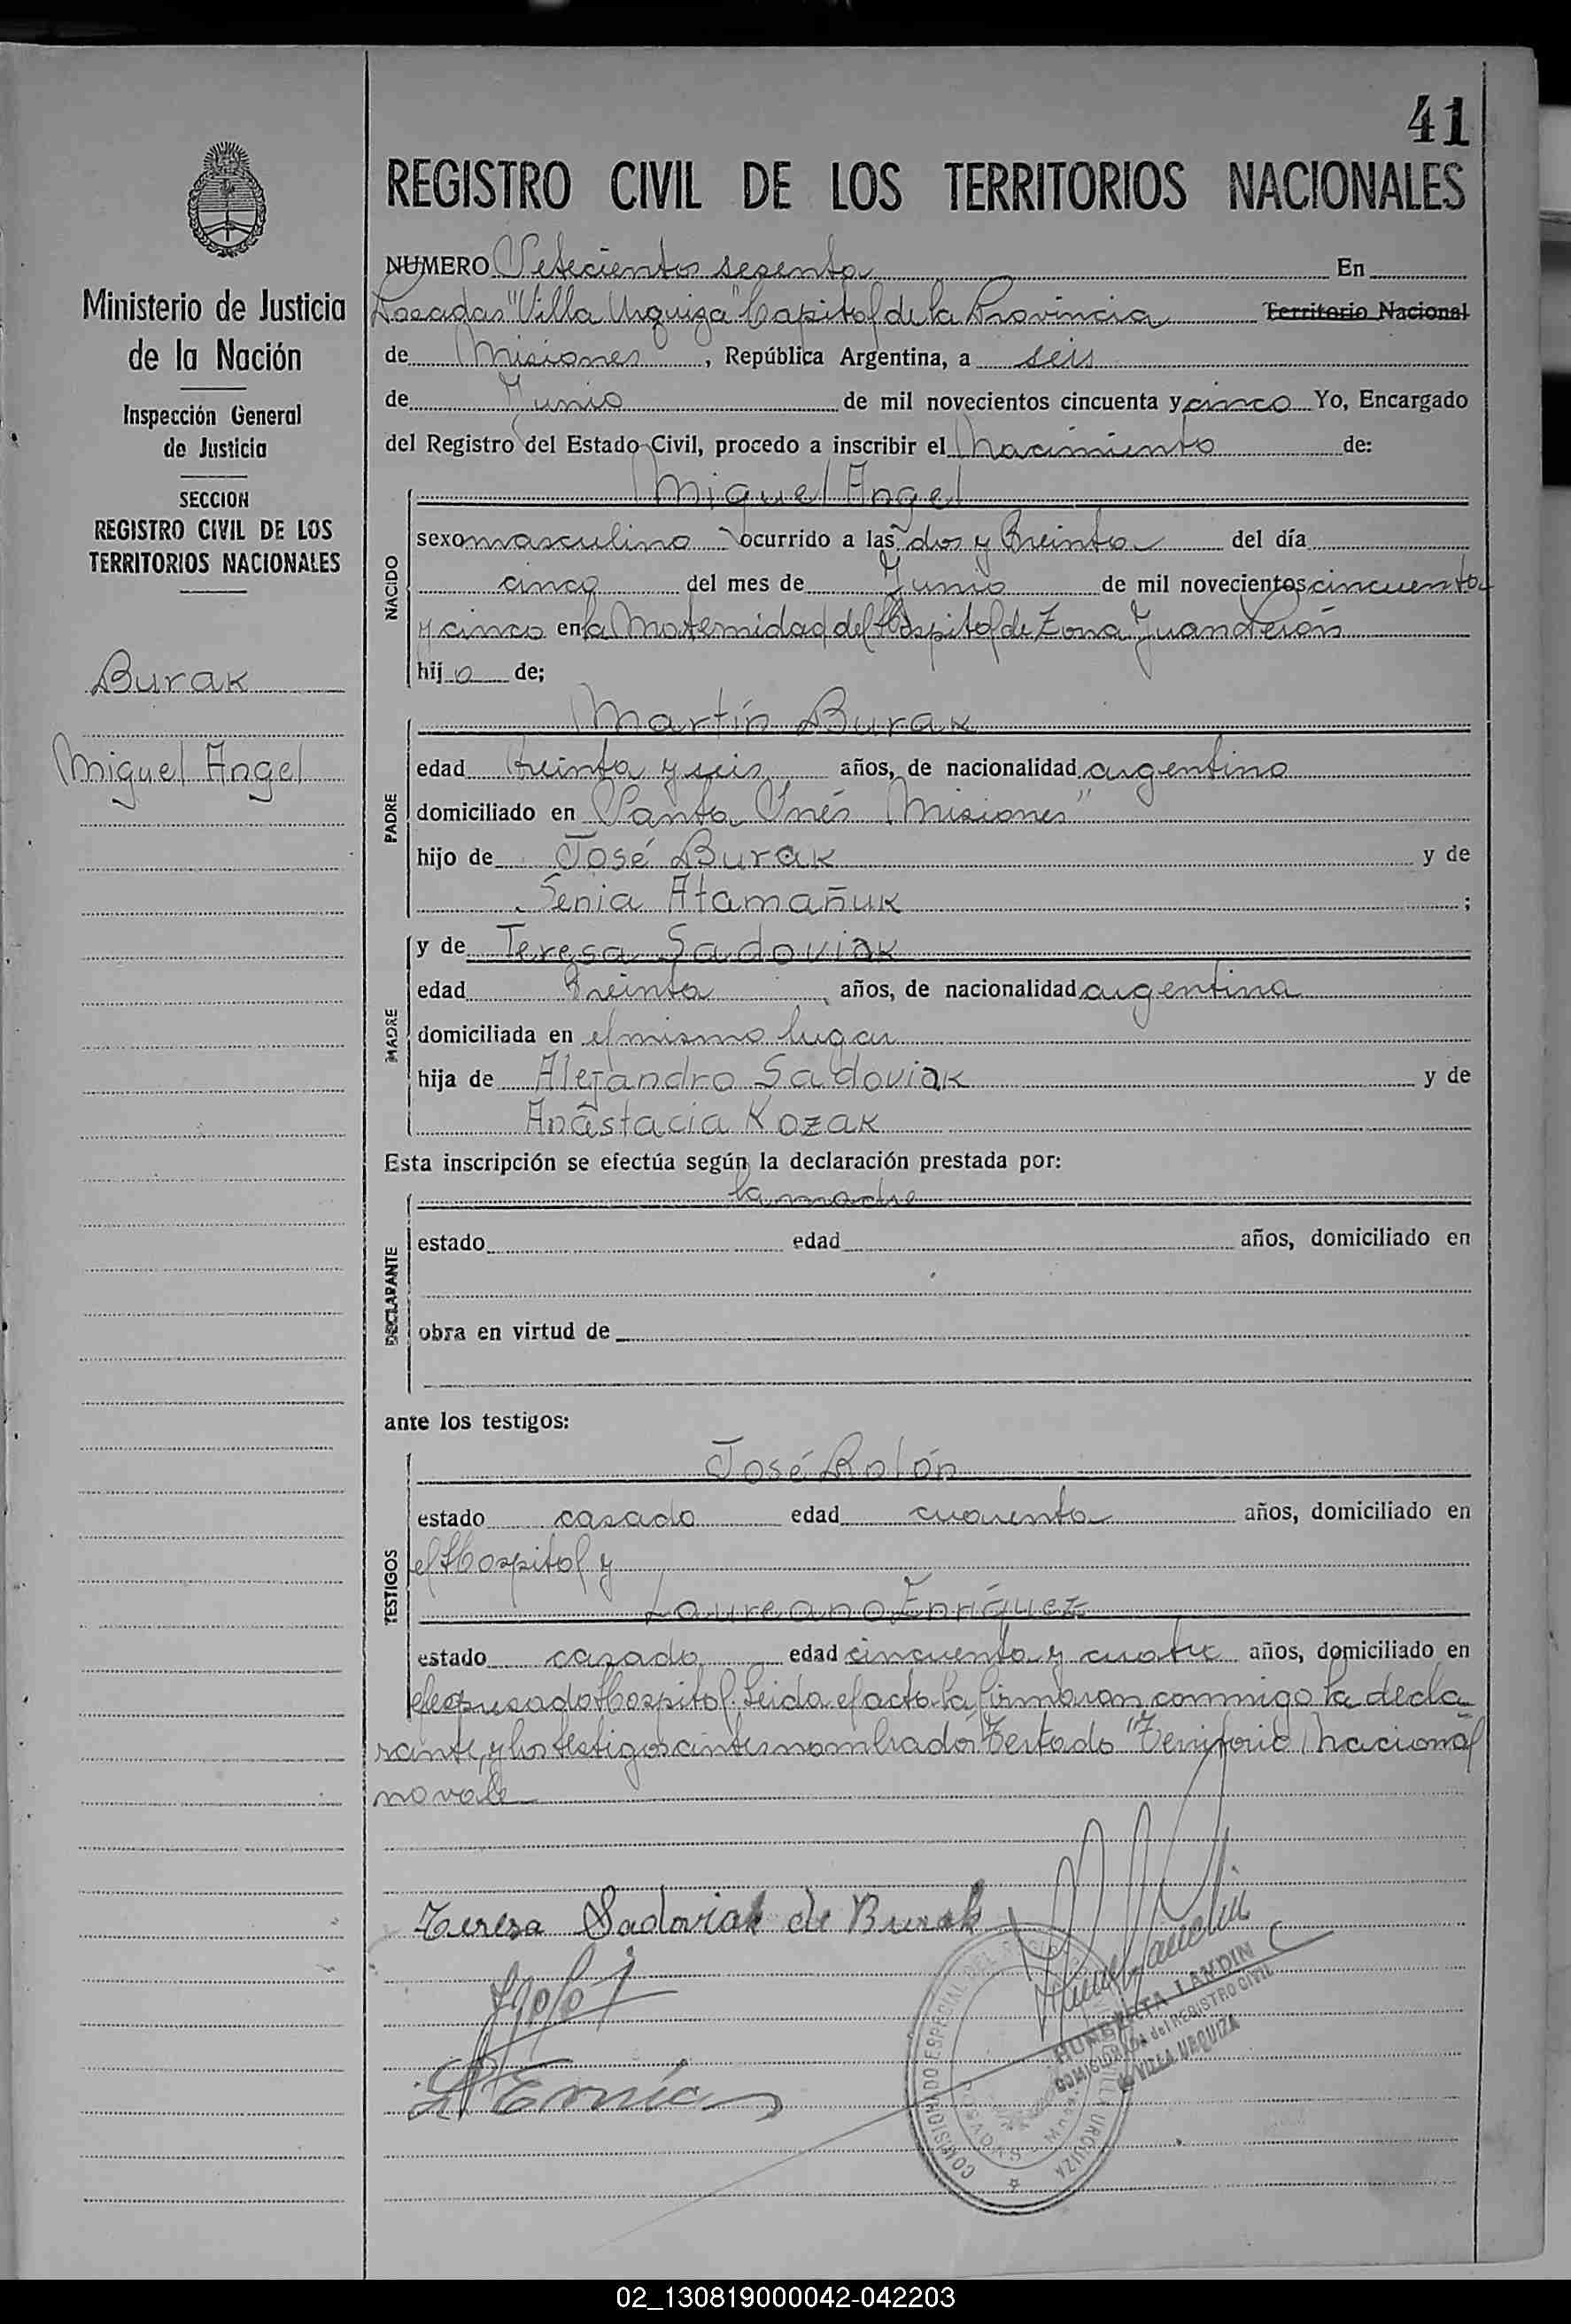 41
REGISTRO CIVIL DE LOS TERRITORIOS NACIONALES
Ministerio de Justicia
de la Nación
Inspección General
de Justicia
SECCION
REGISTRO CIVIL DE LOS
TERRITORIOS NACIONALES
Burak
Miguel Angel
NUMERO Setecientos sesenta En
Posadas "Villa Urquiza" Capital de la Provincia Territorio Nacional
de Misiones, República Argentina, a seis
de Junio de mil novecientos cincuenta y cinco Yo, Encargado
del Registro del Estado Civil, procedo a inscribir el Nacimiento de:
NACIDO
Miguel Angel
sexo masculino ocurrido a las dos y treinta del día
cinco del mes de Junio de mil novecientos cincuenta
y cinco en la Maternidad del Hospital de Zona Juan Perón
hijo de;
PADRE
Martín Burak
edad treinta y seis años, de nacionalidad argentino
domiciliado en Santa Inés Misiones"
hijo de José Burak y de
Senia Atamañuk ;
MADRE
y de Teresa Sadoviak
edad treinta años, de nacionalidad argentina
domiciliada en el mismo lugar
hija de Alejandro Sadoviak y de
Anastacia Kozak
Esta inscripción se efectúa según la declaración prestada por:
DECLARANTE
la madre
estado edad años, domiciliado en
obra en virtud de
ante los testigos:
TESTIGOS
José Rolón
estado casado edad cuarenta años, domiciliado en
el Hospital y
Laureano Enríquez
estado casado edad cincuenta y cuatro años, domiciliado en
el expresado Hospital. Leida el acta la firmaron conmigo la decla
rante, y los testigos antes nombrados Testado "Territorio Nacional
no vale
Teresa Sadoviak de Burak
HUMBERTA LANDIN
COMISIONADA del REGISTRO CIVIL
de VILLA URQUIZA
COMISIONADO ESPECIAL DEL
VILLA URQUIZA
POSADAS Mnes.
02_130819000042-042203